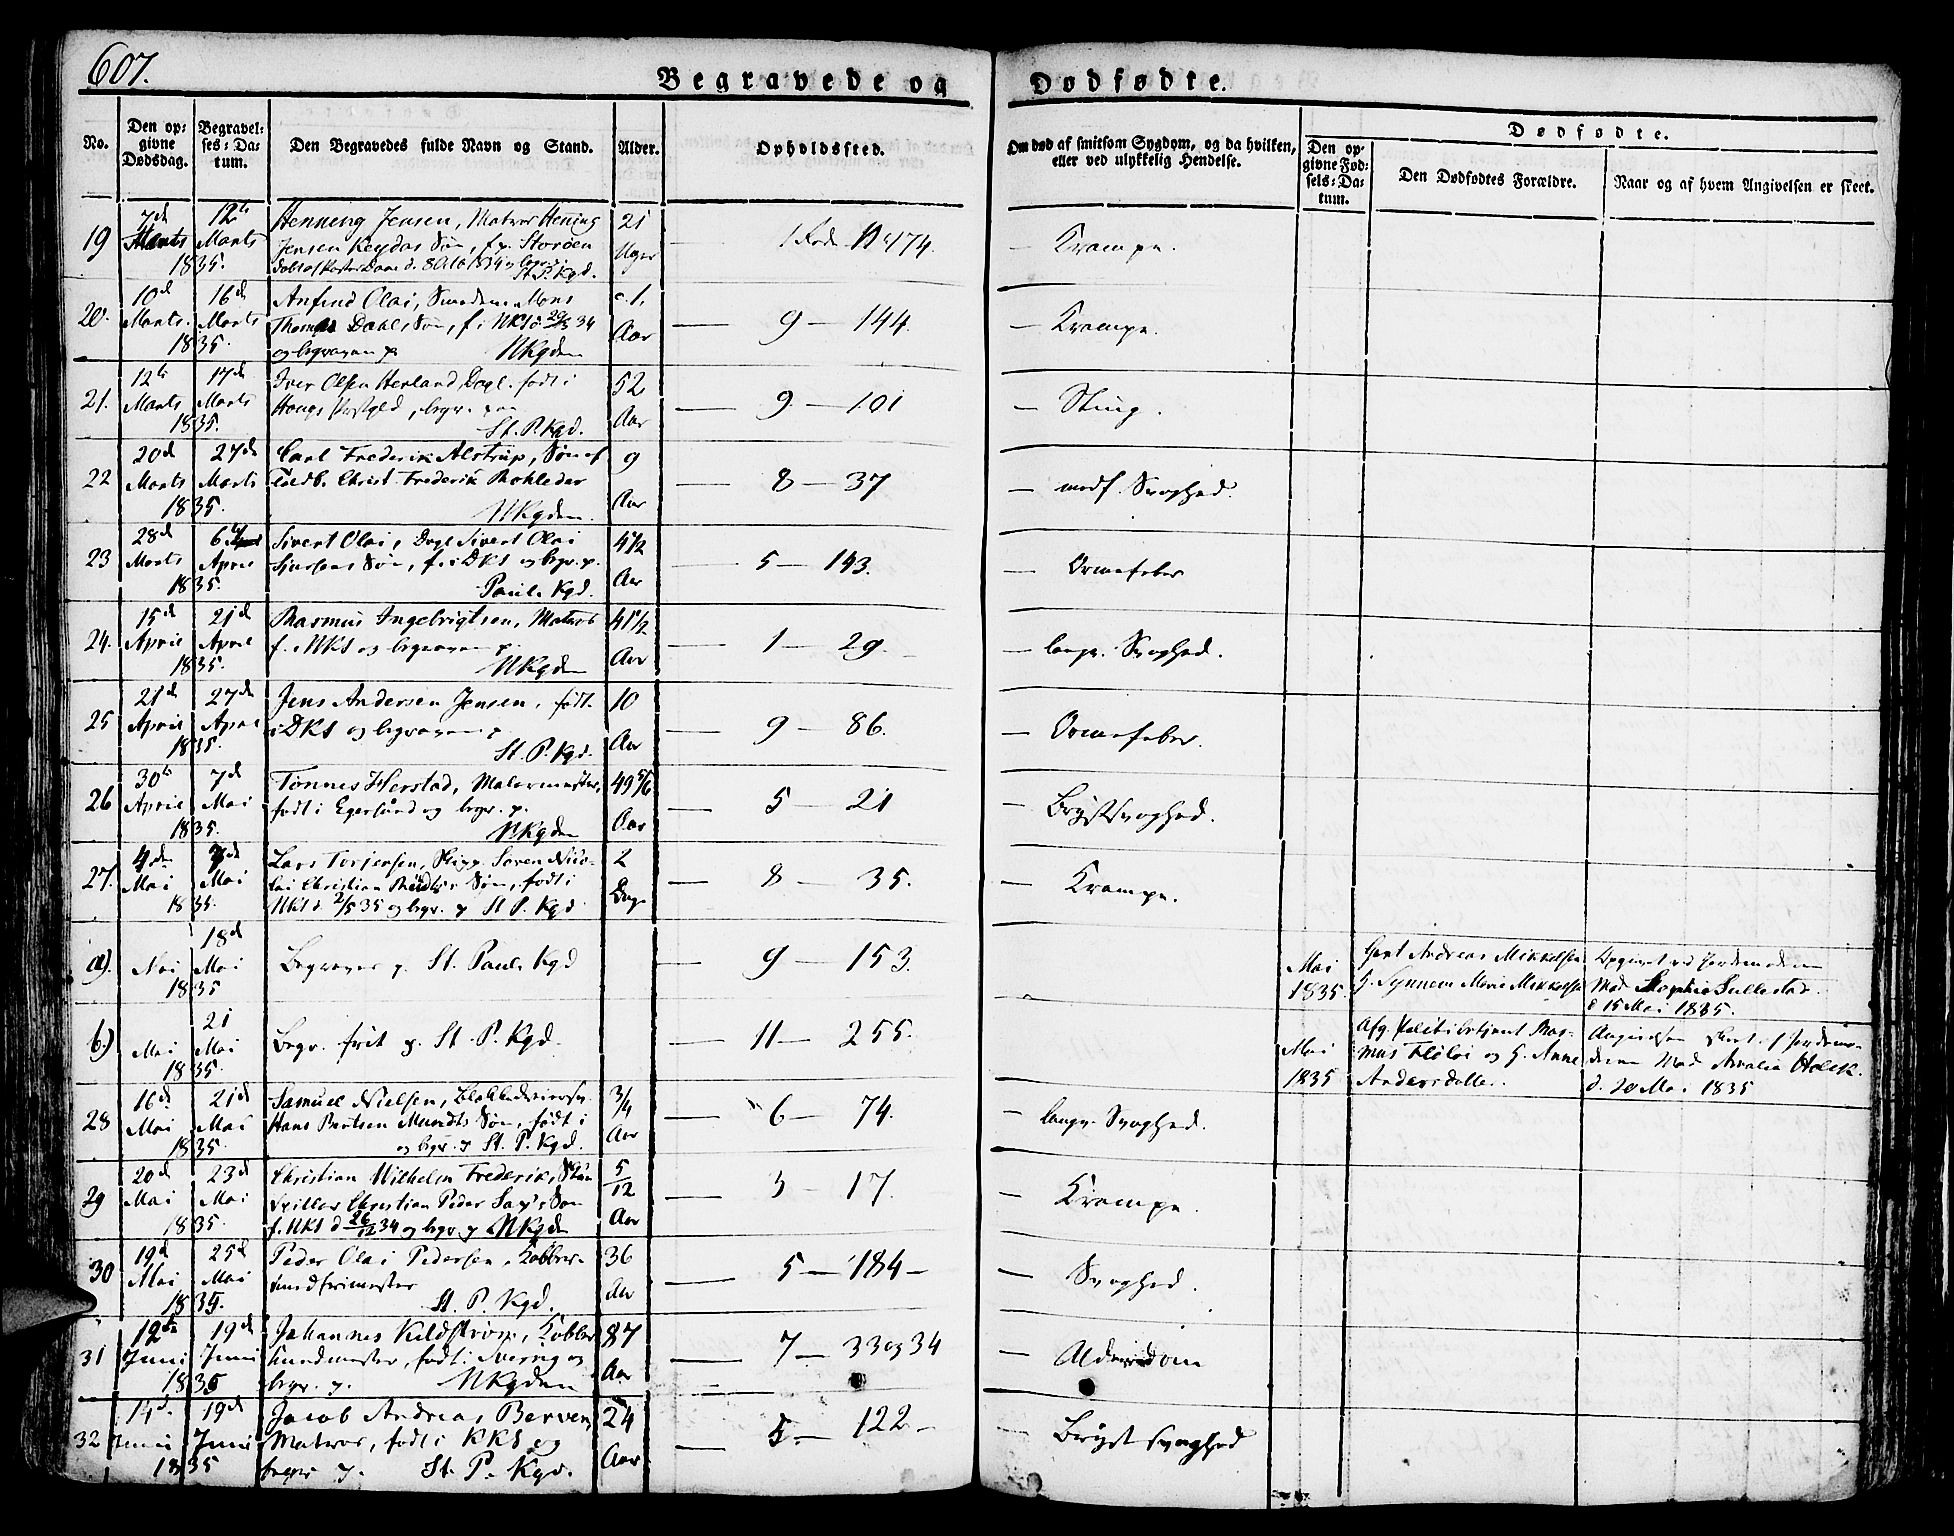 607.
Begravede og Dødfødte.
No.
Den opgivne Dødsdag.
Begravelses-Datum.
Den Begravedes fulde Navn og Stand.
Alder.
Opholdssted.
Om død af smitsom Sygdom, og da hvilken, eller ved ulykkelig Hendelse.
Dødfødte.
Den opgivne Fødsels-Datum.
Den Dødfødtes Forældre.
Naar og af hvem Angivelsen er skeet.
19 7de Marts 1835. 12te Marts Henning Jensen, Matros Henning 21 Uger 1 Rode N 474. — Krampe.
Jensen Søn, Storøen
St. P. Kgd.
20. 10d Marts. 1835. 16d Marts Anfind Olai, Mons Aar — 9 — 144. — Krampe.
Thom Dahls Søn, f. i NKS d 34
og begraven p NKgden
21. 12te Marts 1835. 17de Marts Iver Olsen Herland, født i 52 Aar — 9 — 101 — Sting.
Hougs Præstgld, begr. paa
St. P. Kgd.
22 20d Marts 1835. 27de Marts Carl Frederik Alstrup, Søn af 9 Aar — 8 — 37 — Svaghed.
Christ. Frederik Rohleder
NKgden.
23 28d Marts 1835. 6 April Sivert Olai, Sivert Olai 4 1/2 Aar — 5 — 143. — Ormefeber
Søn, f. i DKS og begr. p.
Pauls Kgd.
24. 15d April 1835. 21d April Rasmus Ingebrigtsen, Matros 41 1/2 Aar — 1 — 29. — langv. Svaghed.
f. i NKS og begraven p.
NKgden
25 21d April 1835. 27d April Jens Andersen Jensen, født 10 Aar — 9 — 86. — Ormefeber.
i DKS og begraven p
St. P. Kgd.
26 30te April 1835. 7d Mai Tønnes Herstad, Malermester, 49 5/6 Aar — 5 — 21 — Brystsvaghed.
født i Egersund og begr. p.
NKgden
27. 4de Mai 1835. 7d Mai Lars Torjersen, Skipp. Søren Nico- 2 Dage — 8 — 35. — Krampe.
lai Christian Søn, født i
NKS d. 2/5 35 og begr. p St P. Kgd
a). Mai 1835 18d Mai Begraven p. St. Pauls Kgd — 9 — 153.
Mai 1835. Gert Andreas Mikkelsen
Synneve Marie Mikkelsen
Opgivet ved Jordemoderen
Mad Sophie Sullestad.
d 15 Mai 1835.
b.) Mai 1835. 21 Mai Begr. frit p. St. P. Kgd. — 11 — 255.
Mai 1835 Afg. Politibetjent Ras-
mus Fløloi og H. Anne
Andersdatter.
Angivelsen skeet af Jordemo-
deren Mad Amalia Holck.
d. 20 Mai 1835
28 16d. Mai 1835. 21d Mai Samuel Nielsen, 3/4 Aar 6 — 74. — langv. Svaghed.
Hans Bertsen Mundts Søn, født i
og begr. p St. P. Kgd.
29 20d Mai 1835. 23d Mai Christian Wilhelm Frederik, 5/12 Aar — 3 — 17. — Krampe.
Christian Peder Søn
f. NKS d 26/12 34 og begr. p NKgden
30 19d Mai 1835. 25d Mai Peder Olai Pedersen, Kobber- 36 Aar — 5 — 184 — — Svaghed.
smedsvend
St. P. Kgd.
31 12te Juni 1835 19d Juni Johannes Kildstrøm, Kobber- 87 Aar — 7 — 33 og 34 — Alderdom
smedmester, født i Sverrig og
begr. p. NKgden
32 14d. Juni 1835 19d Juni Jacob Andreas Berven, 24 Aar — 5 — 122 — — Brystsvaghed
Matros, født i KKS og
begr. p. St. P. Kgd.